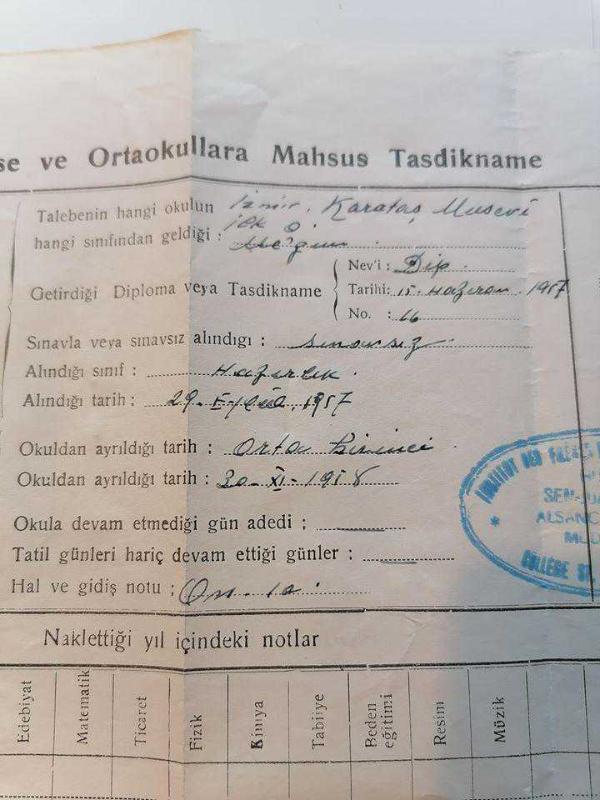 se ve Ortaokullara Mahsus Tasdikname
Talebenin hangi okulun İzmir. Karataş Musevi
hangi sınıfından geldiği : İlk O
Nev'i : Dip.
Getirdiği Diploma veya Tasdikname
Tarihi: 15. Haziran. 1957
No. : 16
Sınavla veya sınavsız alındığı : sınavsız
Alındığı sınıf : Hazırlık.
Alındığı tarih : 29. Eylül. 1957
Okuldan ayrıldığı tarih : Orta birinci
Okuldan ayrıldığı tarih : 20. XI. 1958
Okula devam etmediği gün adedi :
Tatil günleri hariç devam ettiği günler :
Hal ve gidiş notu : On. 10.
Naklettiği yıl içindeki notlar
Edebiyat
Matematik
Ticaret
Fizik
Kimya
Tabiiye
Beden eğitimi
Resim
Müzik
ALSANC
COLLEGE ST